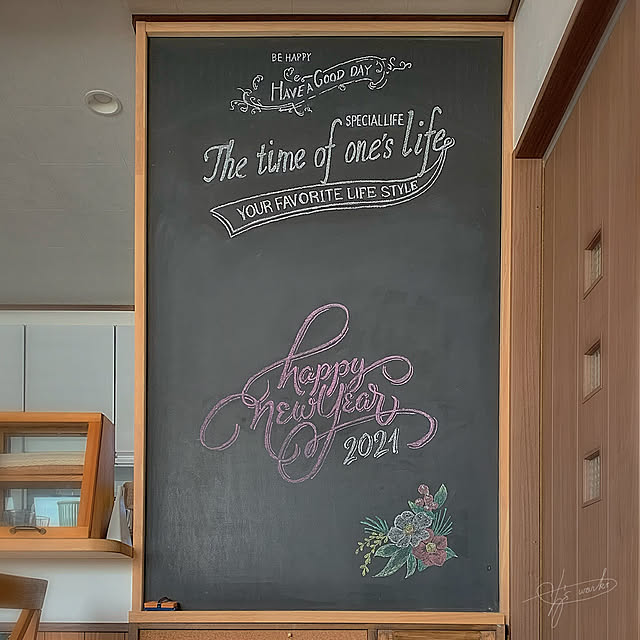 BE HAPPY
HAVE A GOOD DAY
SPECIAL LIFE
The time of one's life
YOUR FAVORITE LIFE STYLE
happy
new year
2021
works